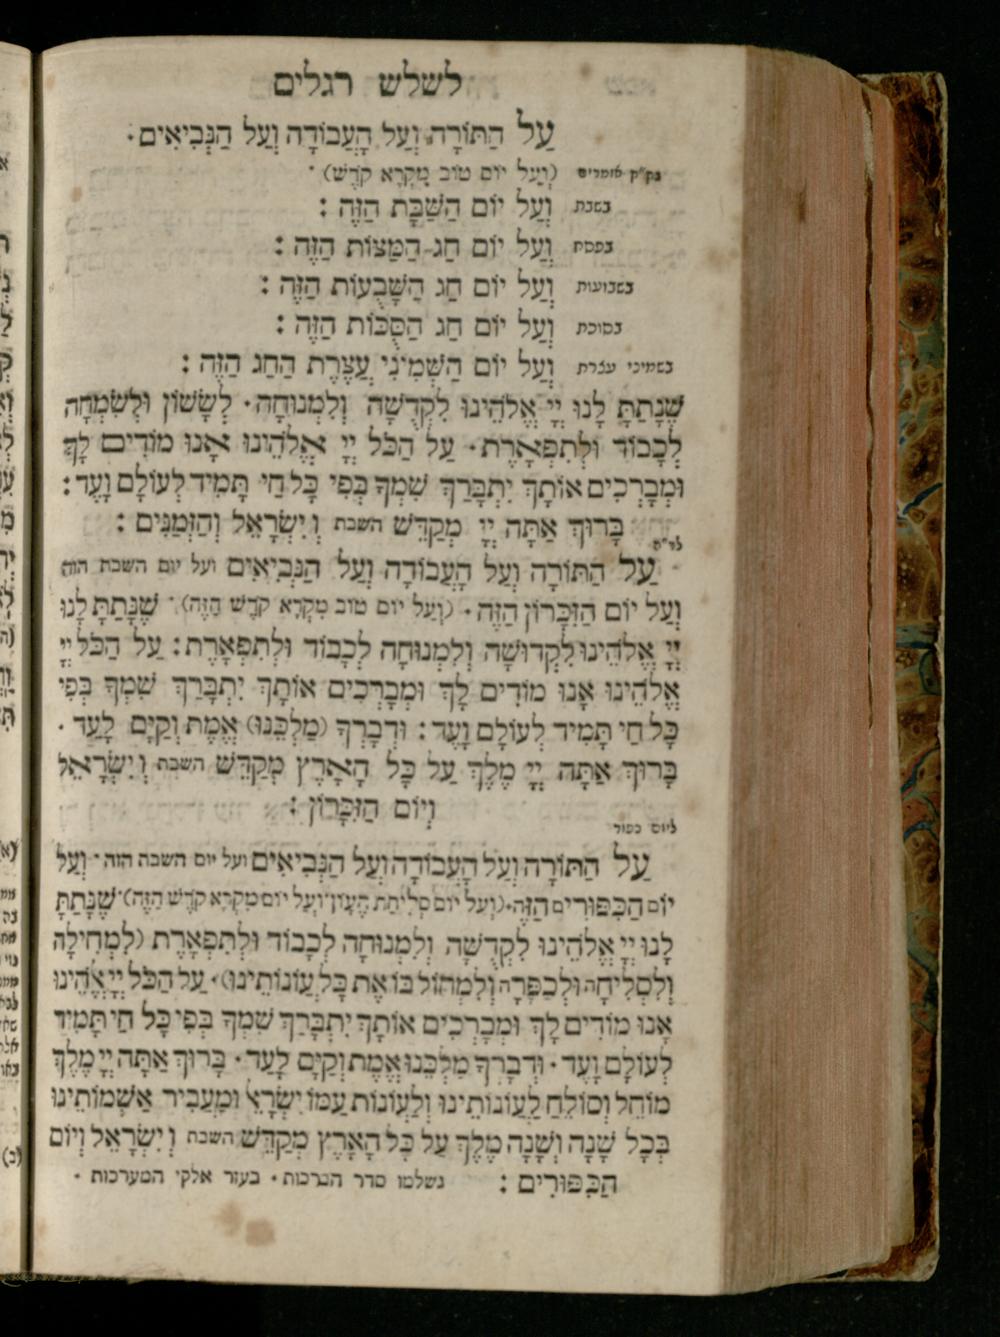 לשלש רגלים
עַל הַתּוֹרָה וְעַל הָעֲבוֹדָה וְעַל הַנְּבִיאִים·
בק״ק אומרים (וְעַל יוֹם טוֹב מִקְרָא קֹדֶשׁ) ·
בשבת וְעַל יוֹם הַשַּׁבָּת הַזֶּה :
בפסח וְעַל יוֹם חַג הַמַּצּוֹת הַזֶּה :
בשבועות וְעַל יוֹם חַג הַשָּׁבֻעוֹת הַזֶּה :
בסוכת וְעַל יוֹם חַג הַסֻּכּוֹת הַזֶּה :
בשמיני עצרת וְעַל יוֹם הַשְּׁמִינִי עֲצֶרֶת הַחַג הַזֶּה :
שֶׁנָּתַתָּ לָנוּ יְיָ אֱלֹהֵינוּ לִקְדֻשָּׁה וְלִמְנוּחָה· לְשָׂשׂוֹן וּלְשִׂמְחָה
לְכָבוֹד וּלְתִפְאָרֶת· עַל הַכֹּל יְיָ אֱלֹהֵינוּ אָנוּ מוֹדִים לָךְ
וּמְבָרְכִים אוֹתָךְ יִתְבָּרַךְ שִׁמְךָ בְּפִי כָּל חַי תָּמִיד לְעוֹלָם וָעֶד :
בָּרוּךְ אַתָּה יְיָ מְקַדֵּשׁ השבת וְיִשְׂרָאֵל וְהַזְּמַנִּים :
לר״ה
עַל הַתּוֹרָה וְעַל הָעֲבוֹדָה וְעַל הַנְּבִיאִים ועל יום השבת הזה
וְעַל יוֹם הַזִּכָּרוֹן הַזֶּה · (וְעַל יוֹם טוֹב מִקְרָא קֹדֶשׁ הַזֶּה) · שֶׁנָּתַתָּ לָנוּ
יְיָ אֱלֹהֵינוּ לִקְדוּשָׁה וְלִמְנוּחָה לְכָבוֹד וּלְתִפְאָרֶת : עַל הַכֹּל יְיָ
אֱלֹהֵינוּ אָנוּ מוֹדִים לָךְ וּמְבָרְכִים אוֹתָךְ יִתְבָּרַךְ שִׁמְךָ בְּפִי
כָּל חַי תָּמִיד לְעוֹלָם וָעֶד : וּדְבָרְךָ (מַלְכֵּנוּ) אֱמֶת וְקַיָּם לָעַד ·
בָּרוּךְ אַתָּה יְיָ מֶלֶךְ עַל כָּל הָאָרֶץ מְקַדֵּשׁ השבת וְיִשְׂרָאֵל
וְיוֹם הַזִּכָּרוֹן :
ליום כפור
עַל הַתּוֹרָה וְעַל הָעֲבוֹדָה וְעַל הַנְּבִיאִים ועל יום השבת הזה · וְעַל
יוֹם הַכִּפּוּרִים הַזֶּה·(וְעַל יוֹם סְלִיחַת הֶעָוֹן·וְעַל יוֹם מִקְרָא קֹדֶשׁ הַזֶּה)·שֶׁנָּתַתָּ
לָנוּ יְיָ אֱלֹהֵינוּ לִקְדֻשָּׁה וְלִמְנוּחָה לְכָבוֹד וּלְתִפְאָרֶת (לִמְחִילָה
וְלִסְלִיחָה וּלְכַפָּרָה וְלִמְחוֹל בּוֹ אֶת כָּל עֲוֹנוֹתֵינוּ)· עַל הַכֹּל יְיָ אֱלֹהֵינוּ
אָנוּ מוֹדִים לָךְ וּמְבָרְכִים אוֹתָךְ יִתְבָּרַךְ שִׁמְךָ בְּפִי כָּל חַי תָּמִיד
לְעוֹלָם וָעֶד · וּדְבָרְךָ מַלְכֵּנוּ אֱמֶת וְקַיָּם לָעַד · בָּרוּךְ אַתָּה יְיָ מֶלֶךְ
מוֹחֵל וְסוֹלֵחַ לַעֲוֹנוֹתֵינוּ וְלַעֲוֹנוֹת עַמּוֹ יִשְׂרָאֵל וּמַעֲבִיר אַשְׁמוֹתֵינוּ
בְּכָל שָׁנָה וְשָׁנָה מֶלֶךְ עַל כָּל הָאָרֶץ מְקַדֵּשׁ השבת וְיִשְׂרָאֵל וְיוֹם
הַכִּפּוּרִים : נשלמו סדר הברכות · בעזר אלקי המערכות ·